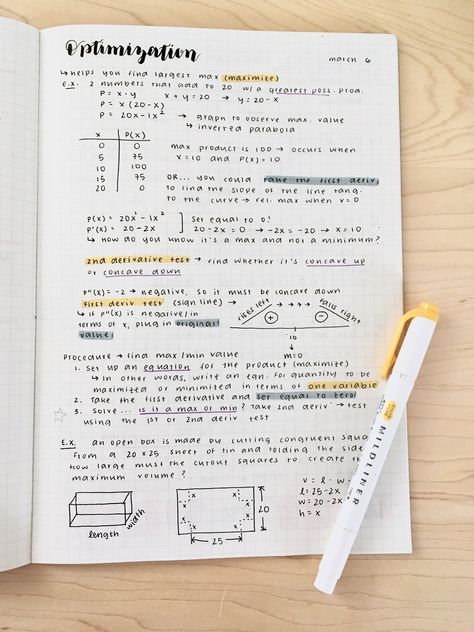 Optimization
march 6
↳ helps you find largest max (maximize)
E.X. 2 numbers that add to 20 w/ a greatest poss. prod.
P = x · y    x + y = 20 → y = 20 - x
P = x (20 - x)
P = 20x - 1x² → graph to observe max. value
↳ inverted parabola
x | P(x)
0 | 0
5 | 75
10 | 100
15 | 75
20 | 0
max product is 100 → occurs when
x = 10 and P(x) = 10
OR... you could take the first deriv
to find the slope of the line tang.
to the curve → rel. max when v = 0
P(x) = 20x' - 1x² ] set equal to 0!
P'(x) = 20 - 2x ] 20 - 2x = 0 → -2x = -20 → x = 10
↳ How do you know it's a max and not a minimum?
2nd derivative test → find whether it's concave up
or concave down
P"(x) = -2 → negative, so it must be concave down
First deriv test (sign line) →
↳ if P"(x) is negative/in
terms of x, plug in original
value
rises left
falls right
+
−
10
m=0
Procedure → find max/min value
1. Set up an equation for the product (maximize)
↳ In other words, write an eqn. for quantity to be
maximized or minimized in terms of one variable
2. Take the first derivative and set equal to zero!
3. Solve ... is it a max or min? Take 2nd deriv → test
using the 1st or 2nd deriv test
E.X. an open box is made by cutting congruent squa
from a 20 x 25 sheet of tin and folding the side
how large must the cutout squares to create th
maximum volume?
length
width
x x
x x
x x
x x
20
25
V = l · w ·
l = 25 - 2x
w = 20 - 2x
h = x
MILDLINER